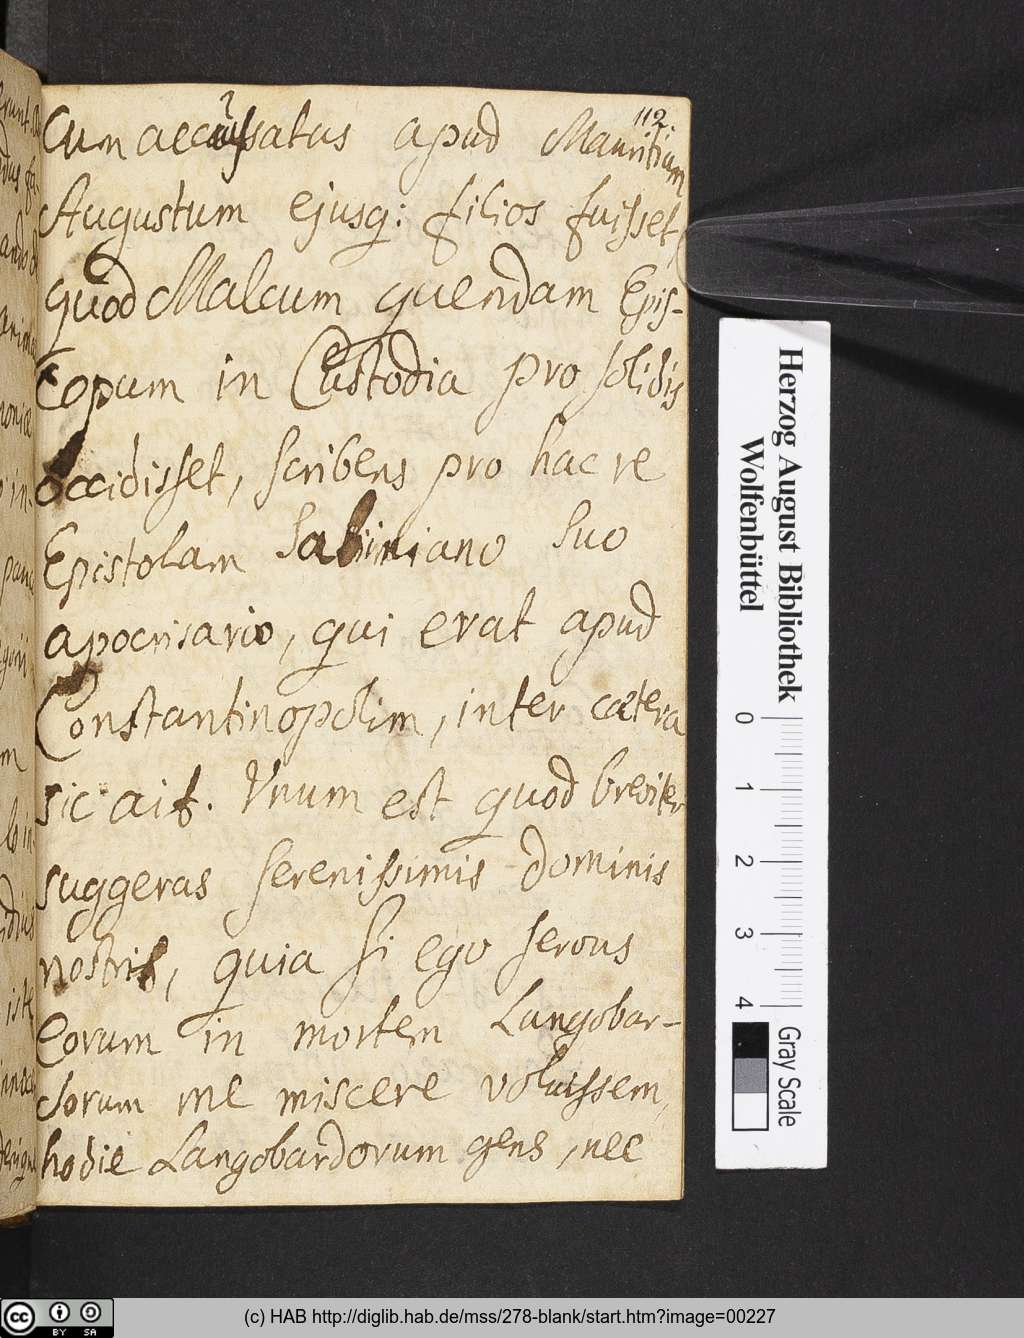 112
Cum accusatus apud Mauritium
Augustum ejusq: filios fuisset,
quod Malcum quendam Epis-
copum in Custodia pro solidis
occidisset, scribens pro hac re
Epistolam Sabiniano suo
apocrisario, qui erat apud
Constantinopolim, inter cætera
sic ait. Vnum est quod breviter
suggeras serenissimis dominis
nostris, quia si ego servus
eorum in mortem Langobar-
dorum me miscere voluissem,
hodie Langobardorum gens, nec
Herzog August Bibliothek
Wolfenbüttel
0 1 2 3 4
Gray Scale
cc BY SA
(c) HAB http://diglib.hab.de/mss/278-blank/start.htm?image=00227